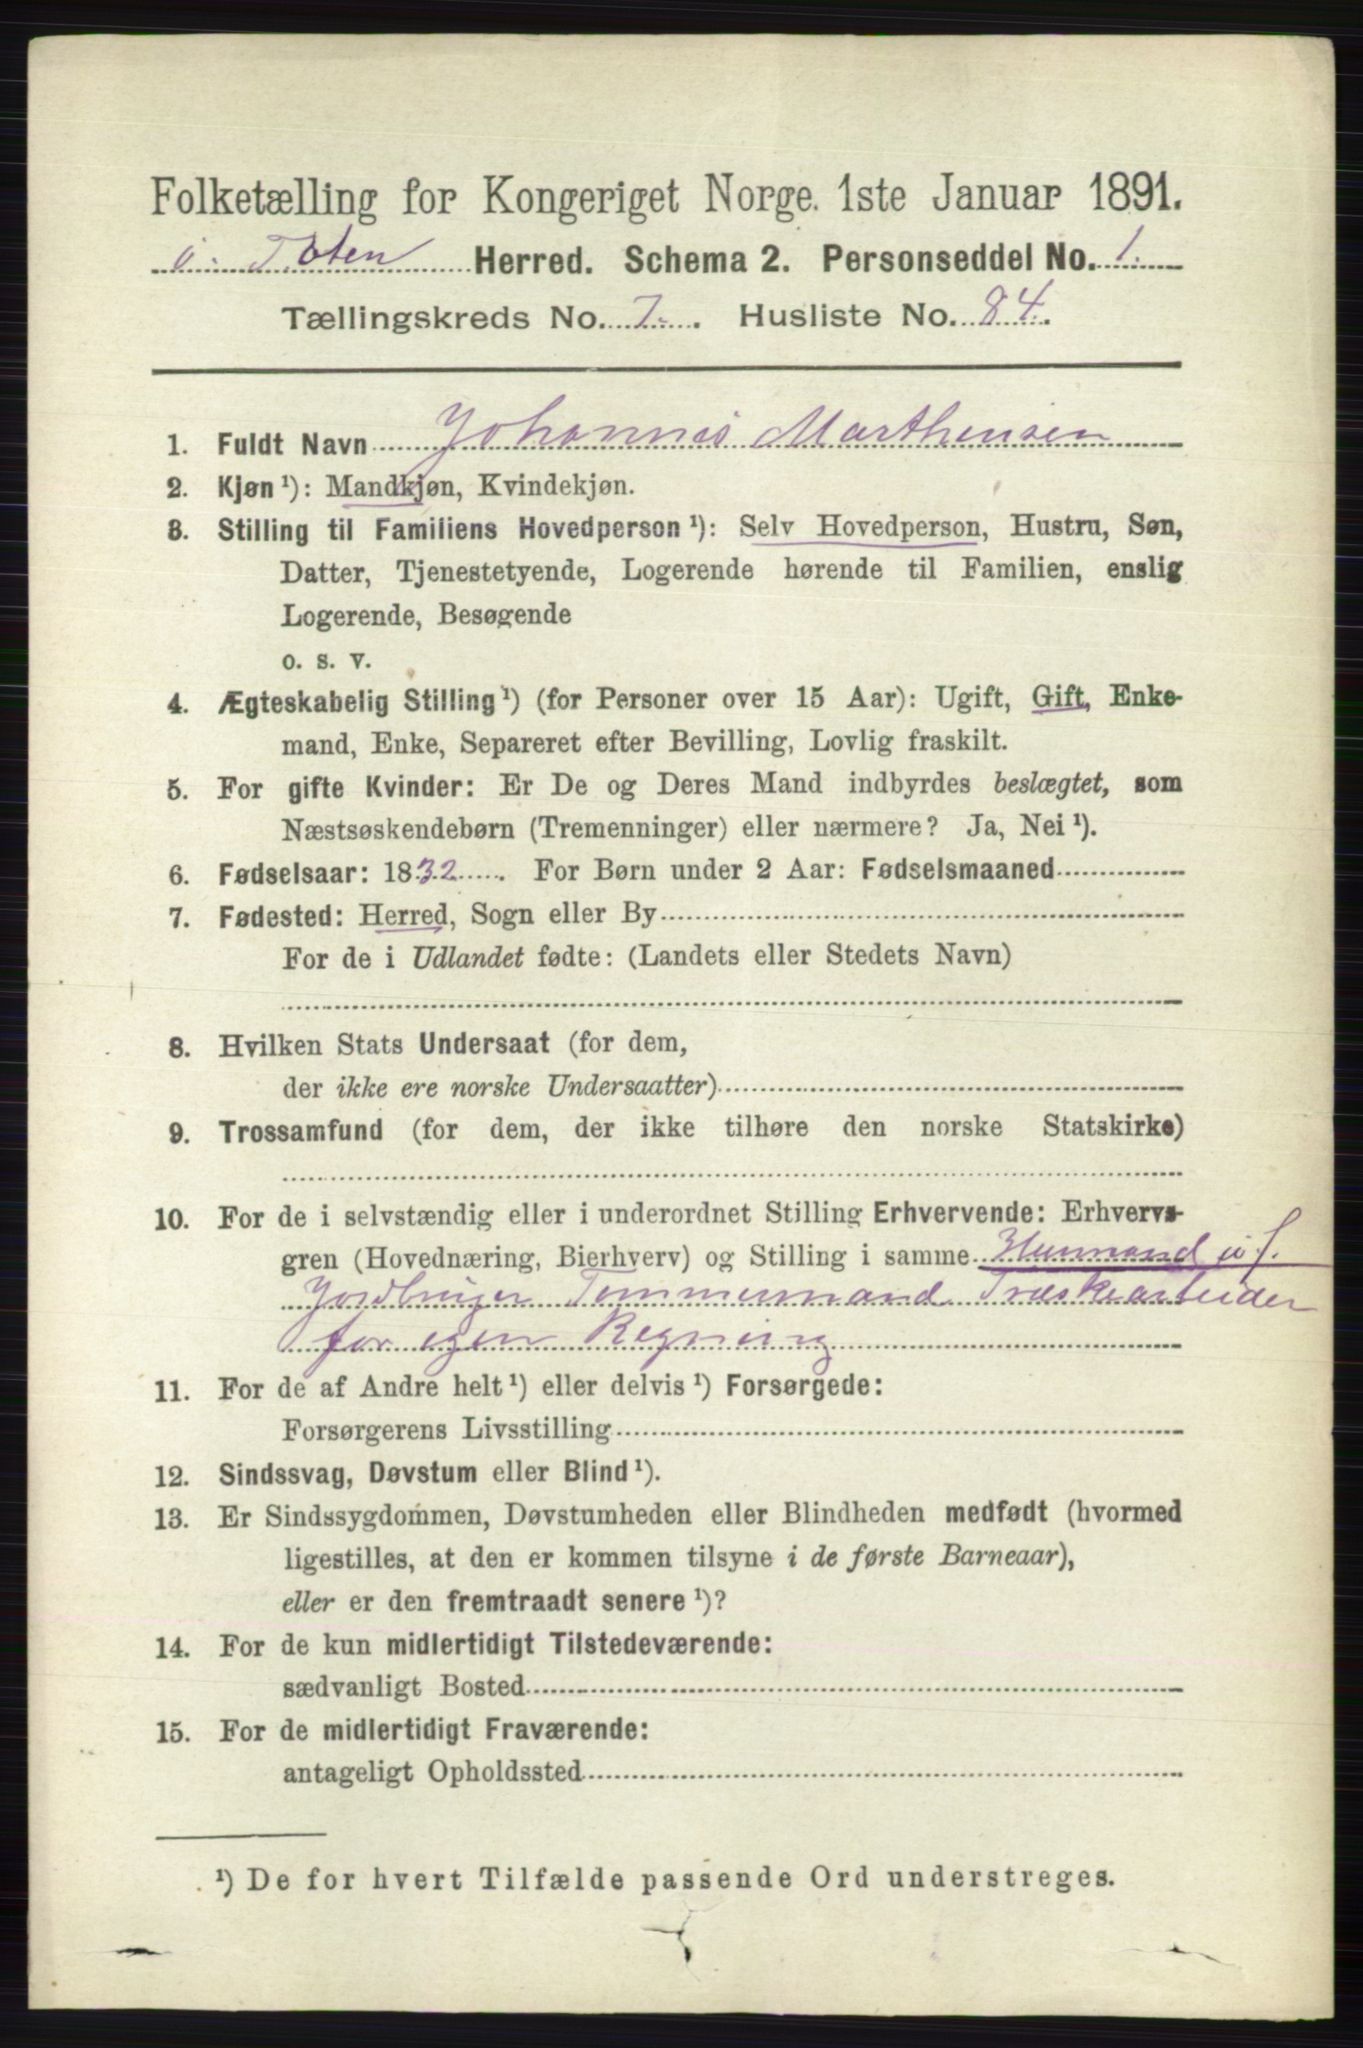 Folketælling for Kongeriget Norge. 1ste Januar 1891.
ø. Toten Herred. Schema 2. Personseddel No. 1.
Tællingskreds No. 7. Husliste No. 84.
1. Fuldt Navn Johannes Marthensen
2. Kjøn ¹): Mandkjøn, Kvindekjøn.
3. Stilling til Familiens Hovedperson ¹): Selv Hovedperson, Hustru, Søn,
Datter, Tjenestetyende, Logerende hørende til Familien, enslig
Logerende, Besøgende
o. s. v.
4. Ægteskabelig Stilling ¹) (for Personer over 15 Aar): Ugift, Gift, Enke-
mand, Enke, Separeret efter Bevilling, Lovlig fraskilt.
5. For gifte Kvinder: Er De og Deres Mand indbyrdes beslægtet, som
Næstsøskendebørn (Tremenninger) eller nærmere? Ja, Nei ¹).
6. Fødselsaar: 1832. For Børn under 2 Aar: Fødselsmaaned
7. Fødested: Herred, Sogn eller By
For de i Udlandet fødte: (Landets eller Stedets Navn)
8. Hvilken Stats Undersaat (for dem,
der ikke ere norske Undersaatter)
9. Trossamfund (for dem, der ikke tilhøre den norske Statskirke)
10. For de i selvstændig eller i underordnet Stilling Erhvervende: Erhvervs-
gren (Hovednæring, Bierhverv) og Stilling i samme Husmand
Jordbruger Tømmermand Træskearbeider
for egen Regning
11. For de af Andre helt ¹) eller delvis ¹) Forsørgede:
Forsørgerens Livsstilling
12. Sindssvag, Døvstum eller Blind ¹).
13. Er Sindssygdommen, Døvstumheden eller Blindheden medfødt (hvormed
ligestilles, at den er kommen tilsyne i de første Barneaar),
eller er den fremtraadt senere ¹)?
14. For de kun midlertidigt Tilstedeværende:
sædvanligt Bosted
15. For de midlertidigt Fraværende:
antageligt Opholdssted
¹) De for hvert Tilfælde passende Ord understreges.